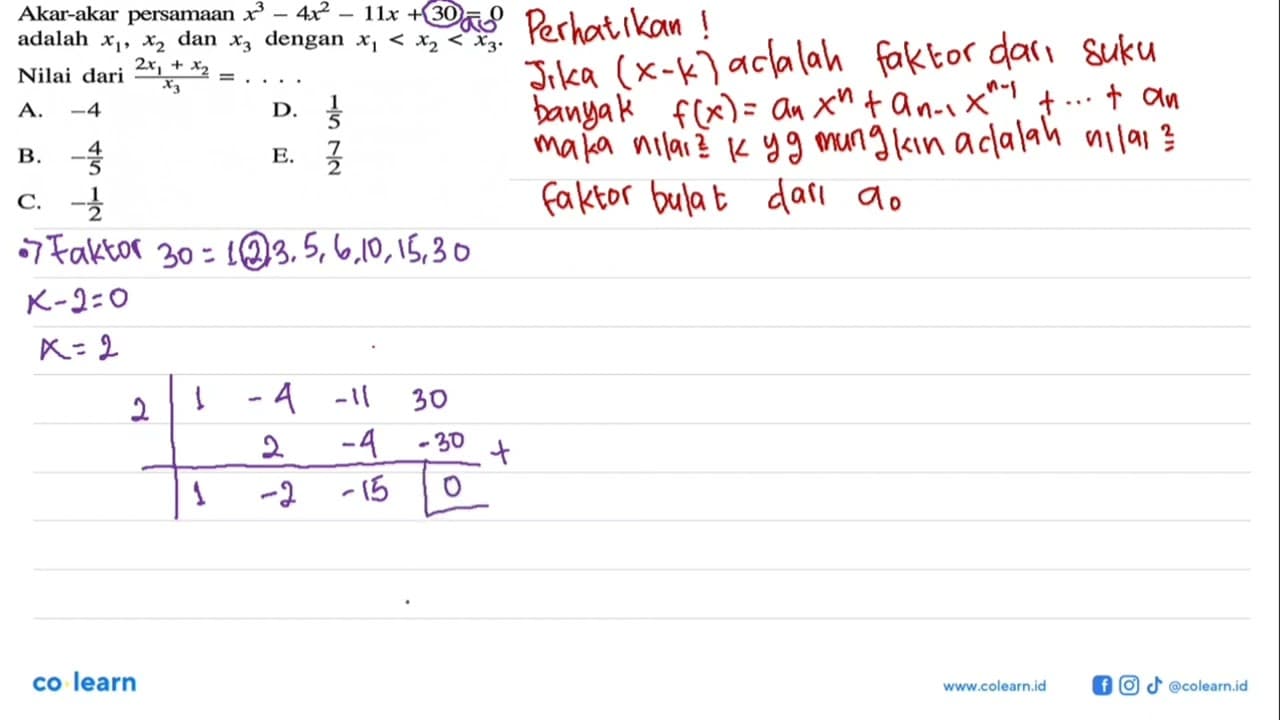 Akar-akar persamaan x³ − 4x² − 11x + 30 = 0
a₀
adalah x₁, x₂ dan x₃ dengan x₁ < x₂ < x₃.
Nilai dari (2x₁ + x₂)/x₃ = . . . .
A. −4 D. 1/5
B. −4/5 E. 7/2
C. −1/2
Perhatikan !
Jika (x-k) adalah faktor dari suku
banyak f(x) = aₙxⁿ + aₙ₋₁xⁿ⁻¹ + ... + aₙ
maka nilai² k yg mungkin adalah nilai²
faktor bulat dari a₀
•) Faktor 30 = 1, 2, 3, 5, 6, 10, 15, 30
x - 2 = 0
x = 2
2 | 1 -4 -11 30
2 -4 -30 +
1 -2 -15 0
co learn
www.colearn.id @colearn.id